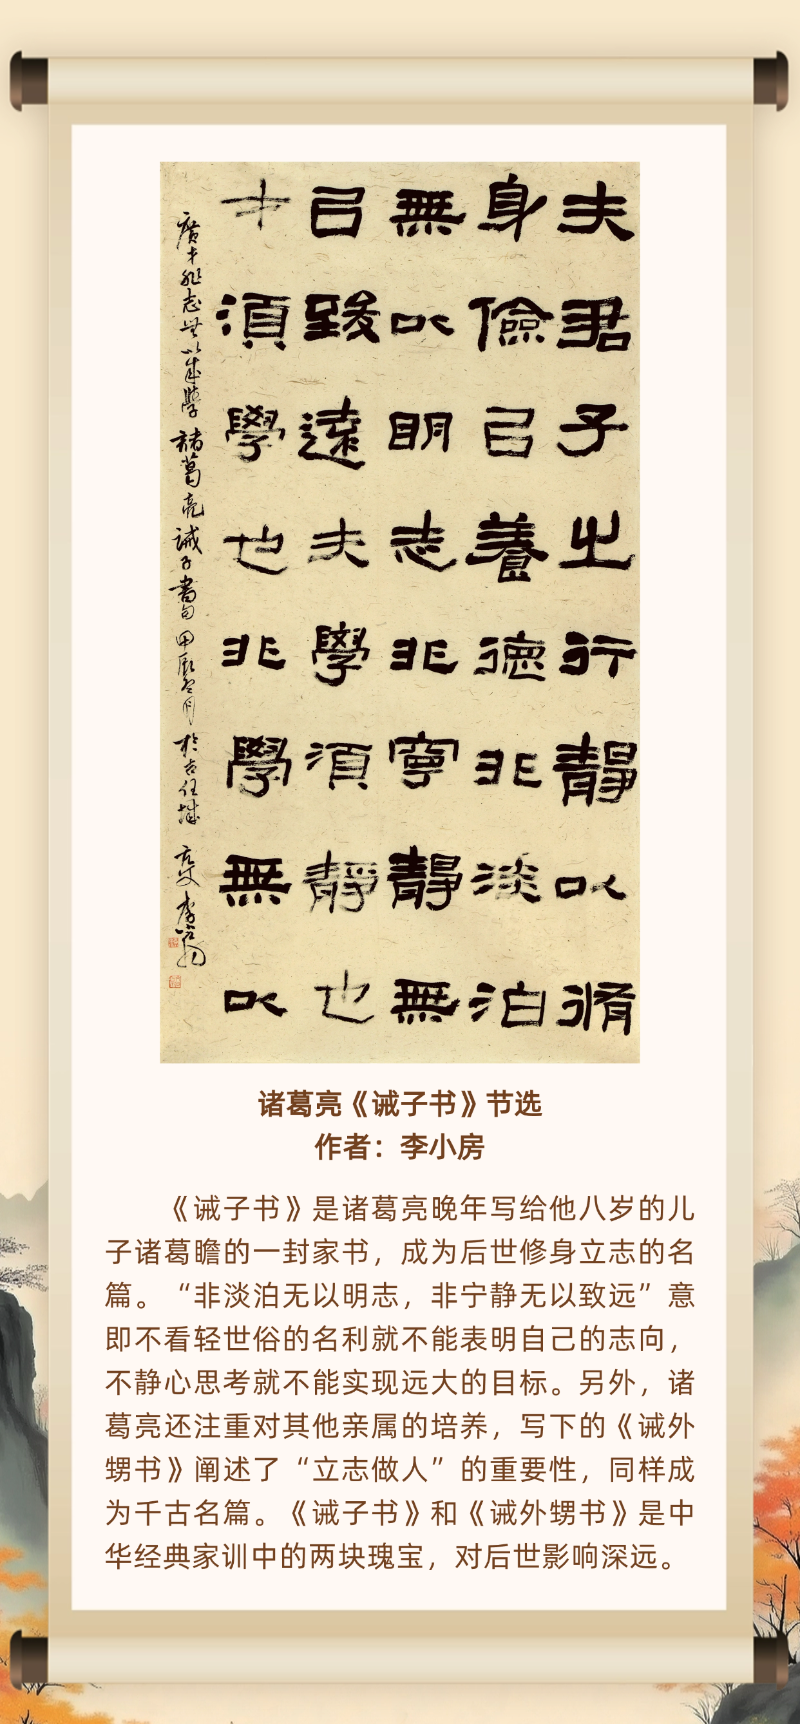 夫君子之行靜以脩
身儉㠯養德非淡泊
無以明志非寧靜無
㠯致遠夫學須靜也
才須學也非學無以
廣才非志無以成學 諸葛亮誡子書句 甲辰 月於古任城
诸葛亮《诫子书》节选
作者：李小房
《诫子书》是诸葛亮晚年写给他八岁的儿
子诸葛瞻的一封家书，成为后世修身立志的名
篇。“非淡泊无以明志，非宁静无以致远”意
即不看轻世俗的名利就不能表明自己的志向，
不静心思考就不能实现远大的目标。另外，诸
葛亮还注重对其他亲属的培养，写下的《诫外
甥书》阐述了“立志做人”的重要性，同样成
为千古名篇。《诫子书》和《诫外甥书》是中
华经典家训中的两块瑰宝，对后世影响深远。